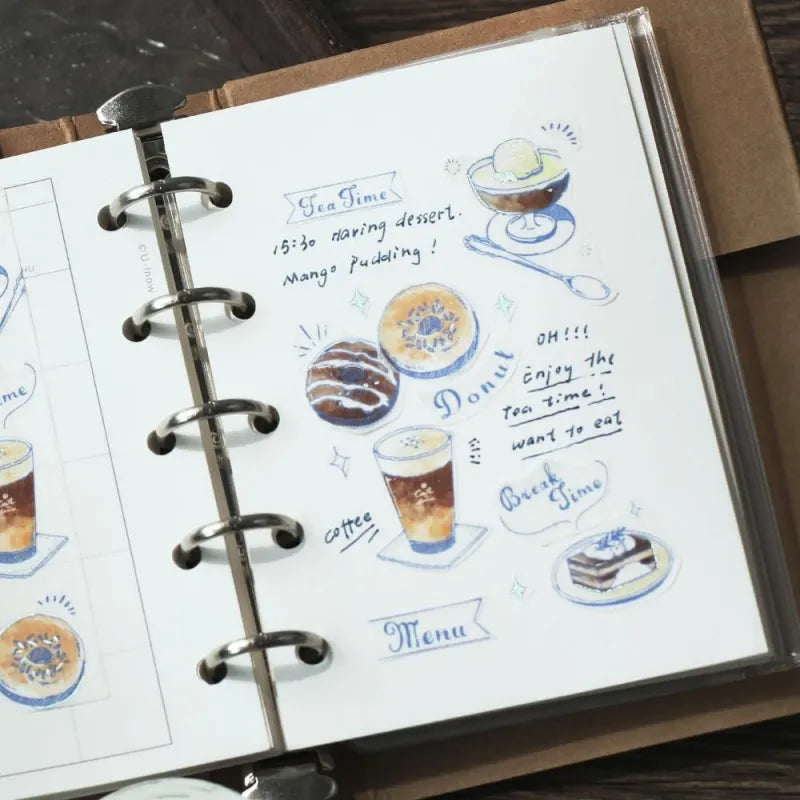 Tea Time
15:30 Having dessert.
Mango pudding!
Donut
OH!!!
Enjoy the
Tea time!
want to eat
Break
Time
coffee
Menu
©U-Inow
me